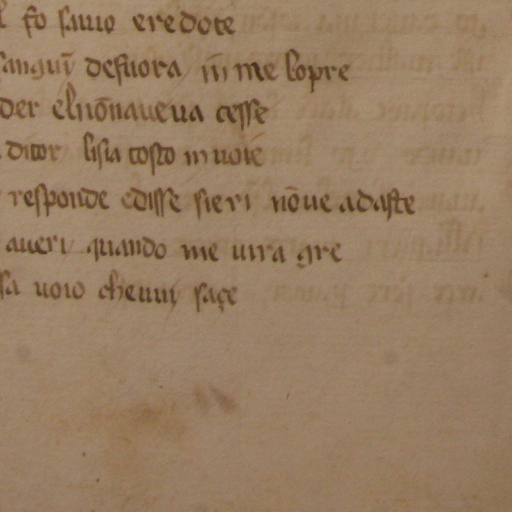 fo sauio eredote
sanguĩ desuora ĩn me sopre
der elnõnaueua cesse
ditor lisia tosto in uoie
responde edisse sieri nõue adaste
aueri quando me uira gre
sa uoio cheuui saçe